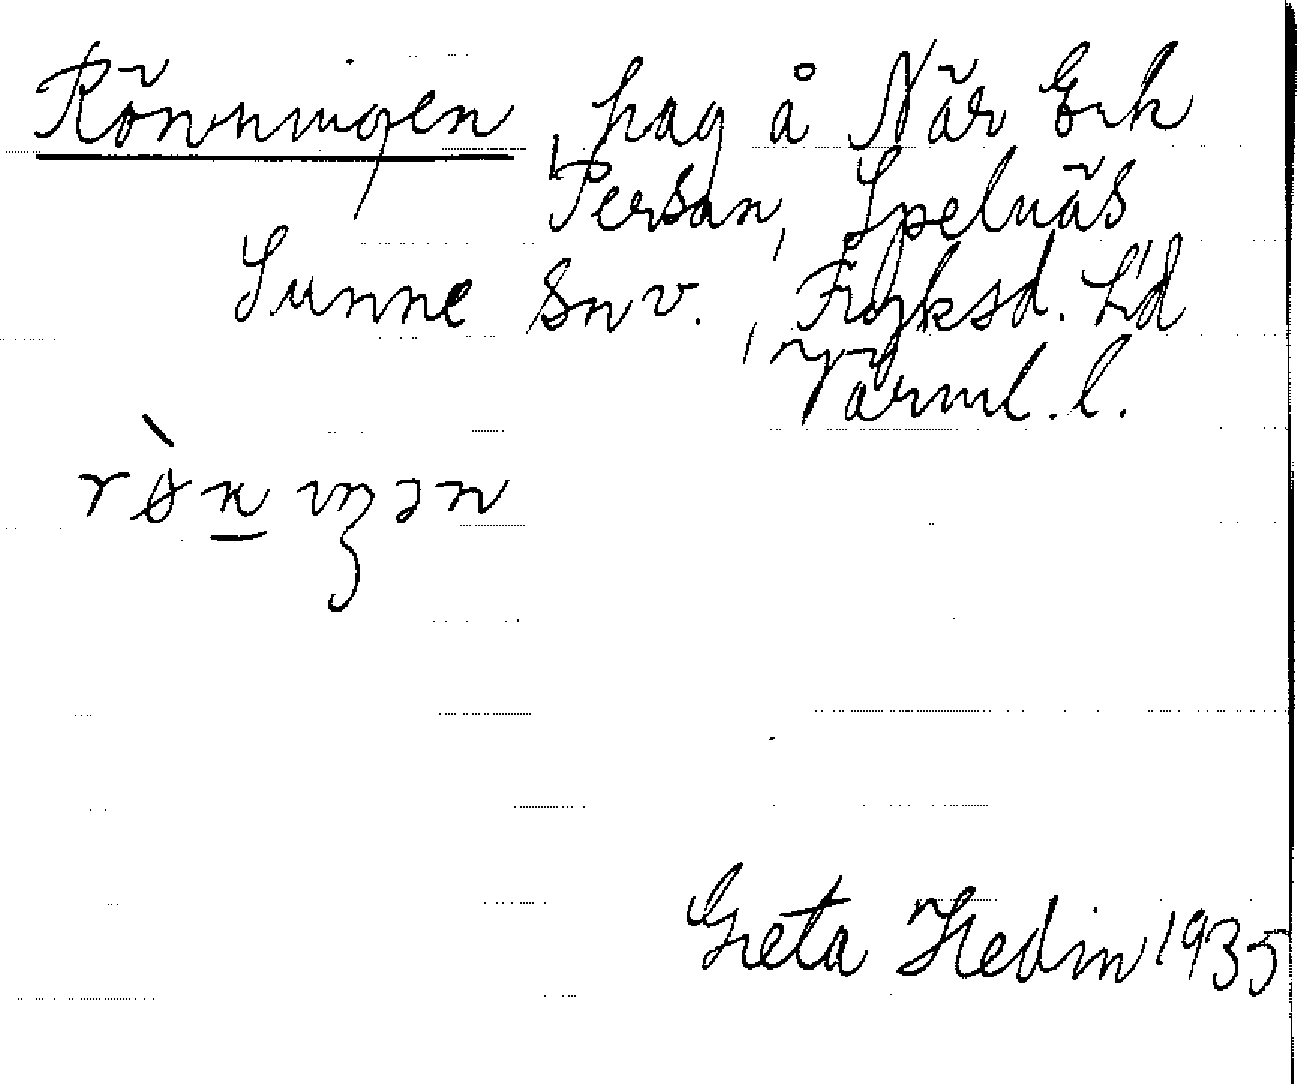 Rönningen, hag å När Erk
Persson, Spelnäs
Sunne sn v., Fryksd. hd
Värml. l.
rø̀n iŋən
Greta Hedin 1935